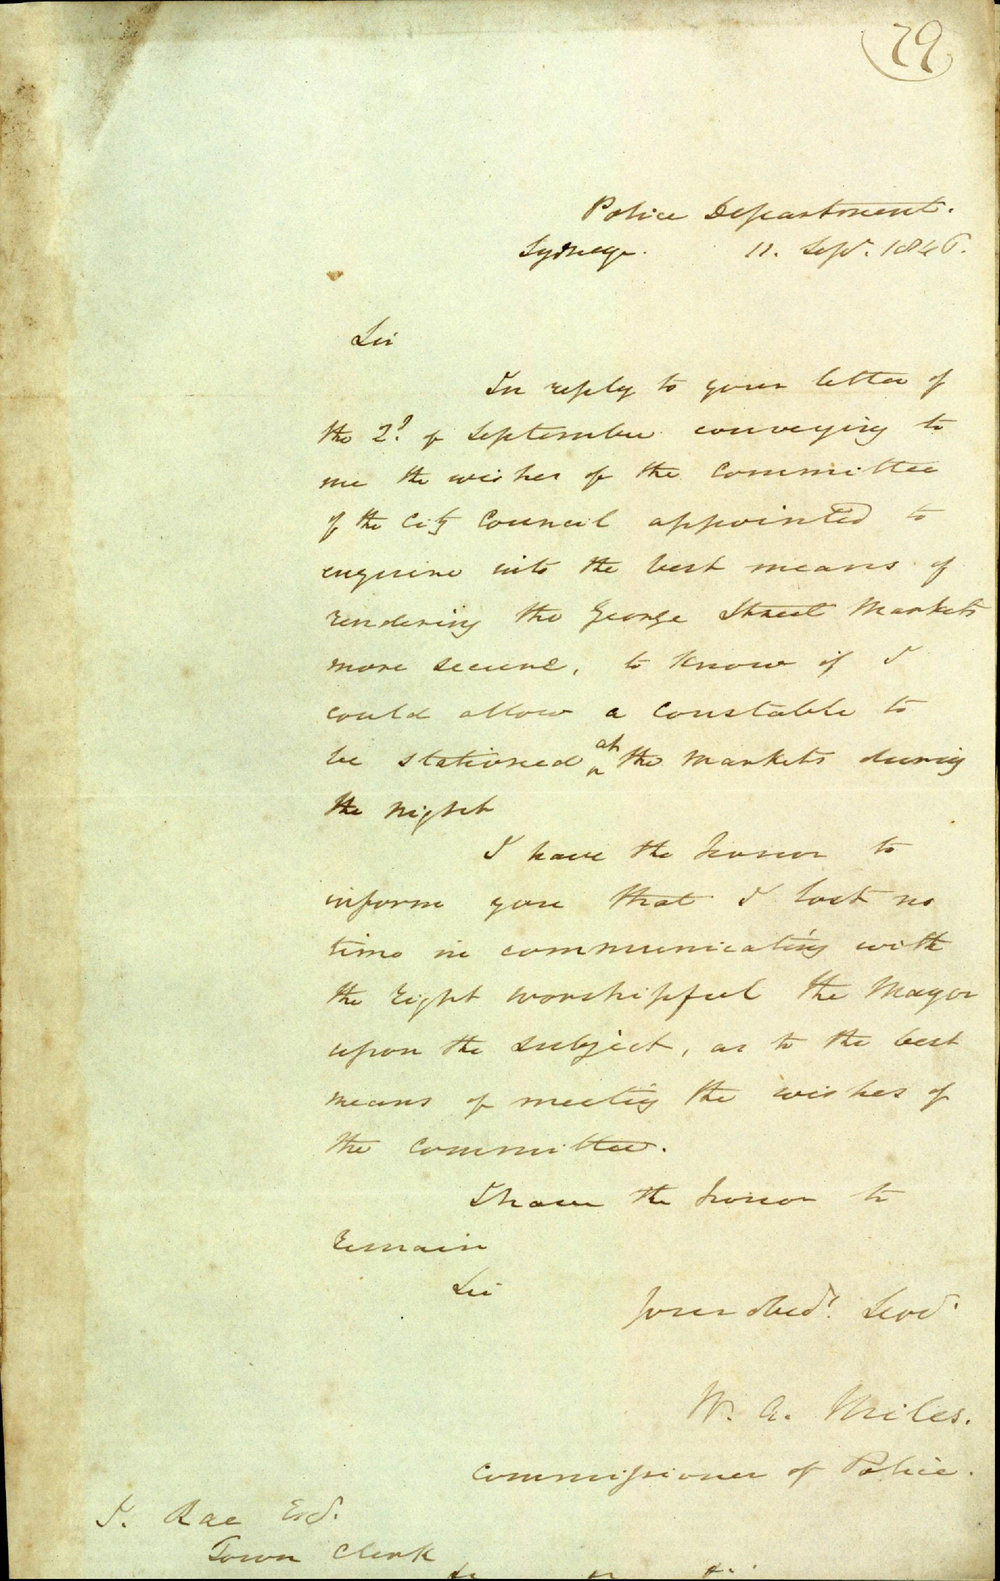 79
Police Department.
Sydney. 11. Sept. 1846.
Sir
In reply to your letter of
the 2d. of September conveying to
me the wishes of the Committee
of the City Council appointed to
enquire into the best means of
rendering the George Street Markets
more secure, to know if I
could allow a Constable to
be stationed at the Markets during
the night
I have the honor to
inform you that I lost no
time in communicating with
the Right Worshipful the Mayor
upon the subject, as to the best
means of meeting the wishes of
the Committee.
I have the honor to
remain
Sir
Your Obed.t Serv.t
W. A. Miles.
Commissioner of Police.
J. Rae Esq.
Town Clerk